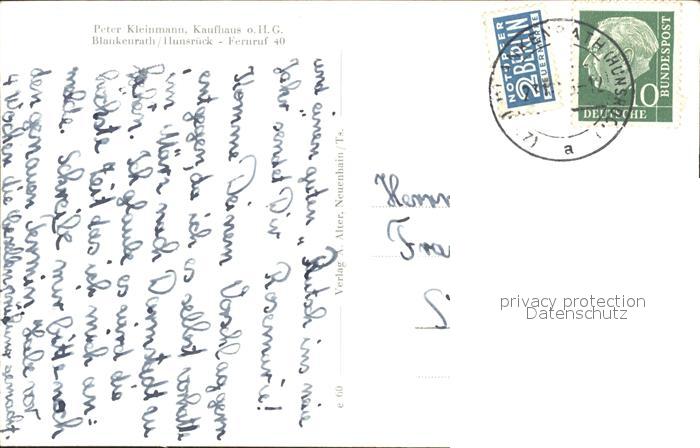 Peter Kleinmann, Kaufhaus o.H.G.
Blankenrath/Hunsrück - Fernruf 40
und einen guten „Rutsch" ins neue
Jahr sendet Dir Rosemarie!
Komme Deinem Vorschlag gern
entgegen, da ich selbst vorhatte
im März nach Darmstadt zu
fahren. Ich glaube es wird die
höchste Zeit das ich mich an-
melde. Schreibe mir bitte noch
den genauen Termin. Habe vor
4 Wochen die
Verlag A. Alter, Neuenhain/Ts.
e 60
NOTOPFER
2 BERLIN
STEUERMARKE
10
DEUTSCHE
BUNDESPOST
BLANKENRATH (HUNSRÜCK)
a
Herrn
Fra
privacy protection
Datenschutz